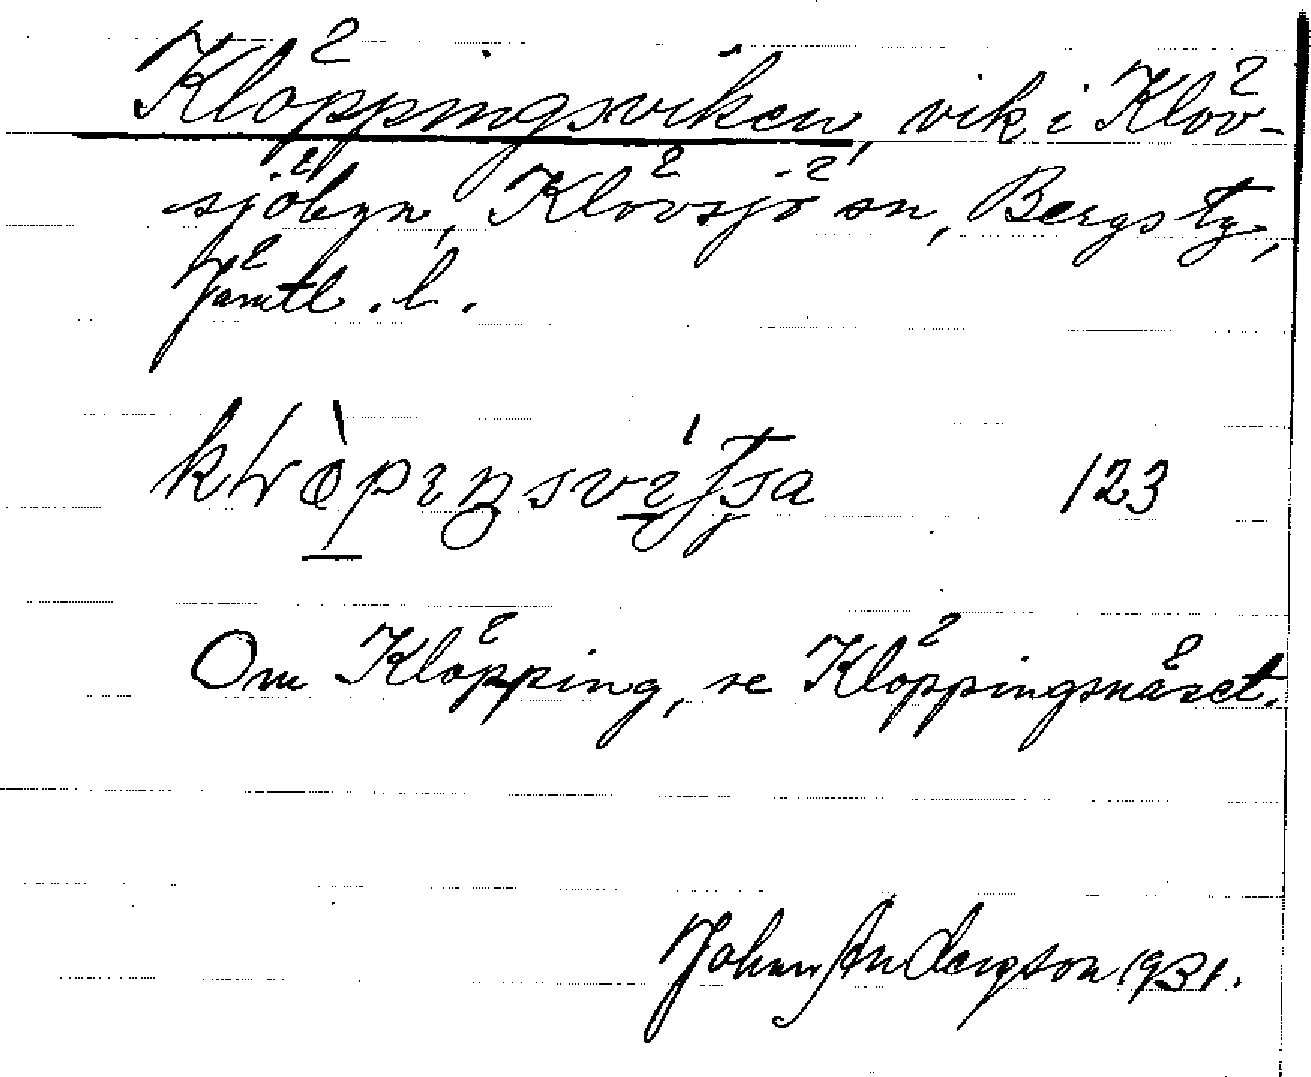 Klöppingsviken, vik i Klöv-
sjöbyn, Klövsjö sn, Bergs tg,
Jämtl. l.
123
Om Klöpping, se Klöppingsnäset.
Johan Anderson 1931.